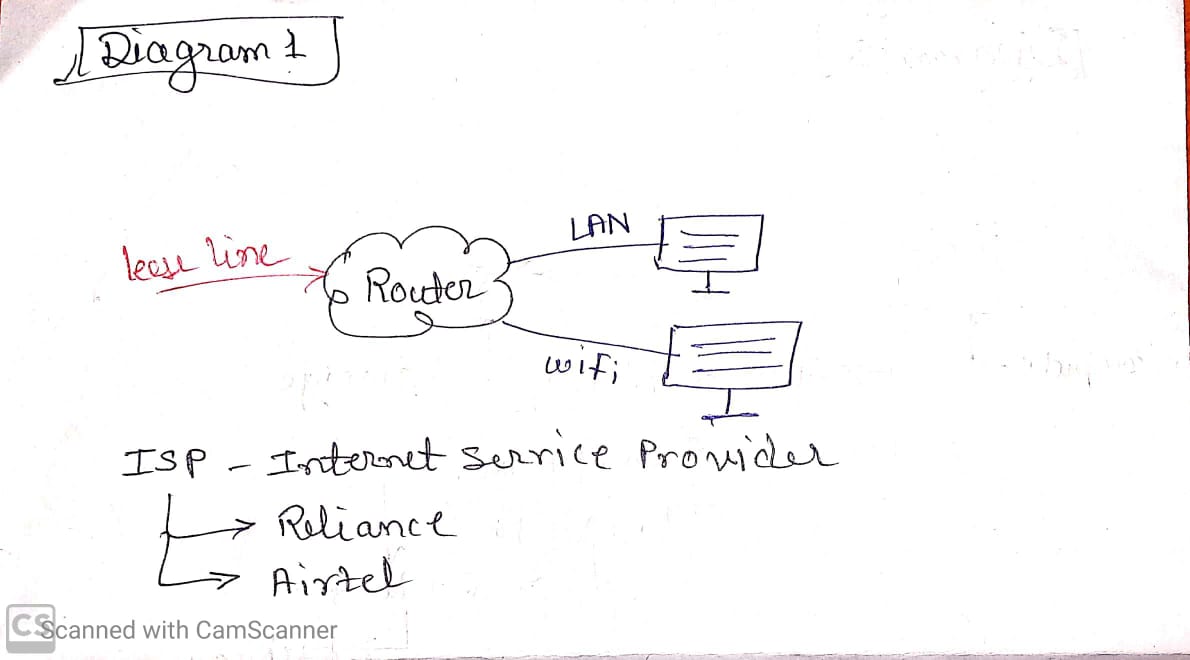 Diagram 1
LAN
leese line
Router
wifi
ISP - Internet Service Provider
Reliance
Airtel
CS Scanned with CamScanner